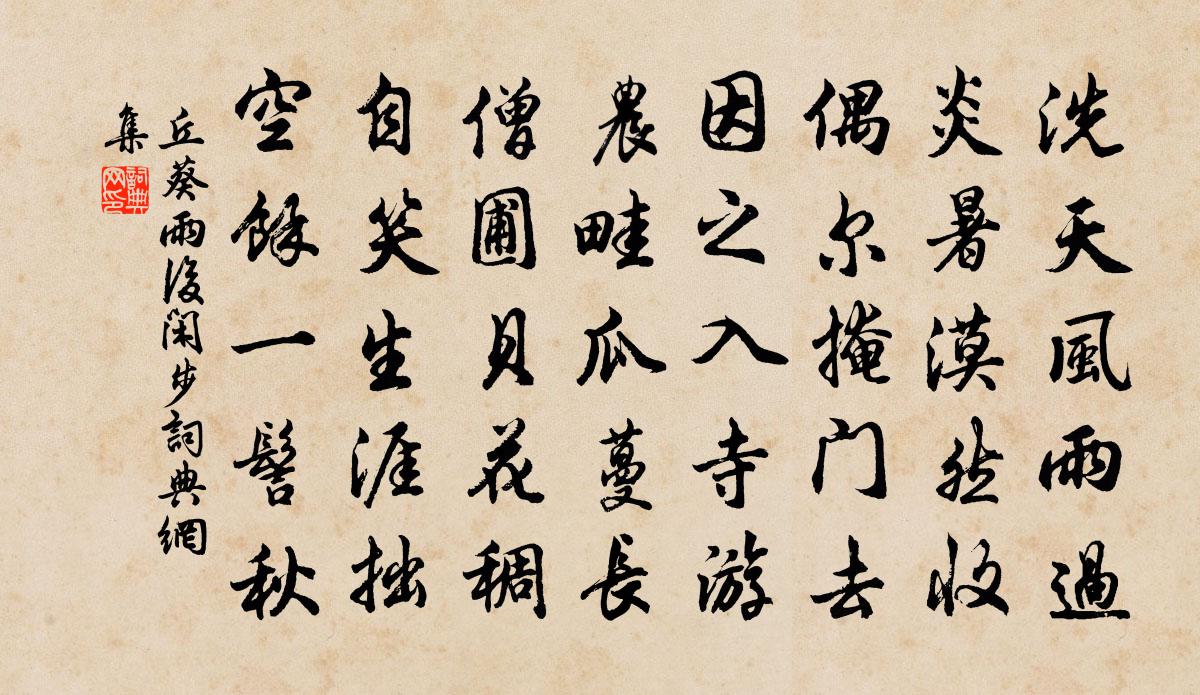 洗天風雨過
炎暑漠然收
偶尔掩门去
因之入寺游
農畦瓜蔓長
僧圃貝花稠
自笑生涯拙
空餘一髻秋
丘葵雨後閑步詞典網
集
詞典
网印